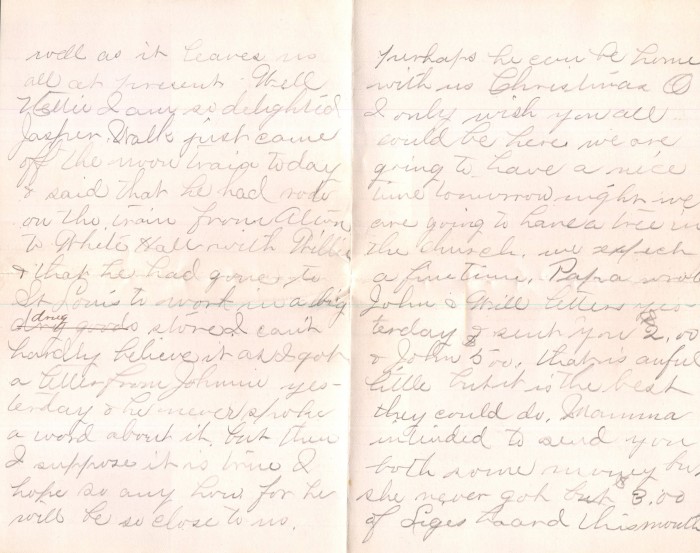 well as it leaves us
all at present. Well
Nettie I am so delighted
Jasper Walk just came
off the noon train today
& said that he had rode
on the train from Alton
to White Hall with Willie
& that he had gone to
St Louis to work in a big
drug
dry goods store I can't
hardly believe it as I got
a letter from Johnie yes-
terday & he never spoke
a word about it, but then
I suppose it is true I
hope so any how for he
will be so close to us.
perhaps he can be home
with us Christmas O
I only wish you all
could be here we are
going to have a nice
time tomorrow night we
are going to have a tree in
the church. we expect
a fine time. Papa wrote
John & Will letters yes-
terday & sent you $2.00
& John 5.00. that is awful
little but it is the best
they could do, Mamma
intended to send you
both some money but
she never got but $3.00
of board this month